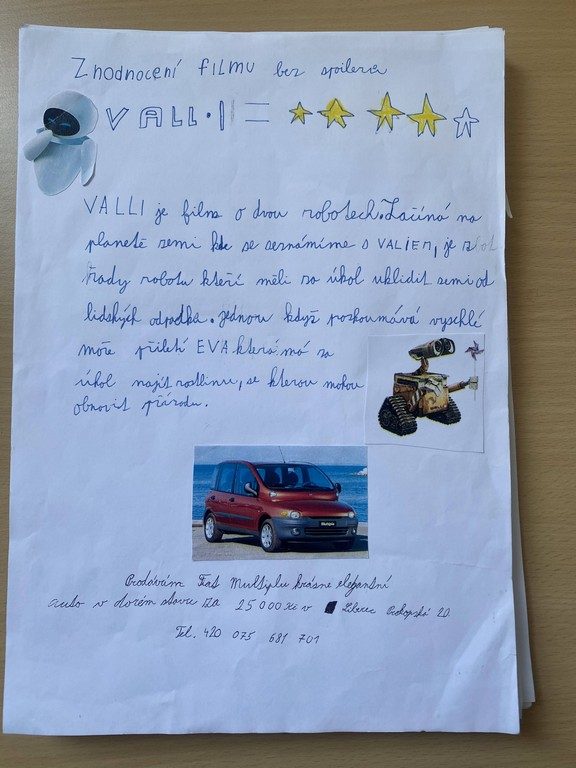 Zhodnocení FILMU bez spoilerů
VALL·I =
VALLI je film o dvou robotech. Začíná na
planetě zemi kde se seznámíme s VALIEM, je z
řady robotu kteří měli za úkol uklidit zemi od
lidských odpadků. jednou když poskoumává vyschlé
moře přiletí EVA která má za
úkol najít rostlinu, se kterou mohou
obnovit přírodu.
Multipla
Prodávám Fiat Multiplu krásne elegantní
auto v dorém stavu za 25 000 Kč v Liberec Prokopská 20
Tel. 420 075 681 701